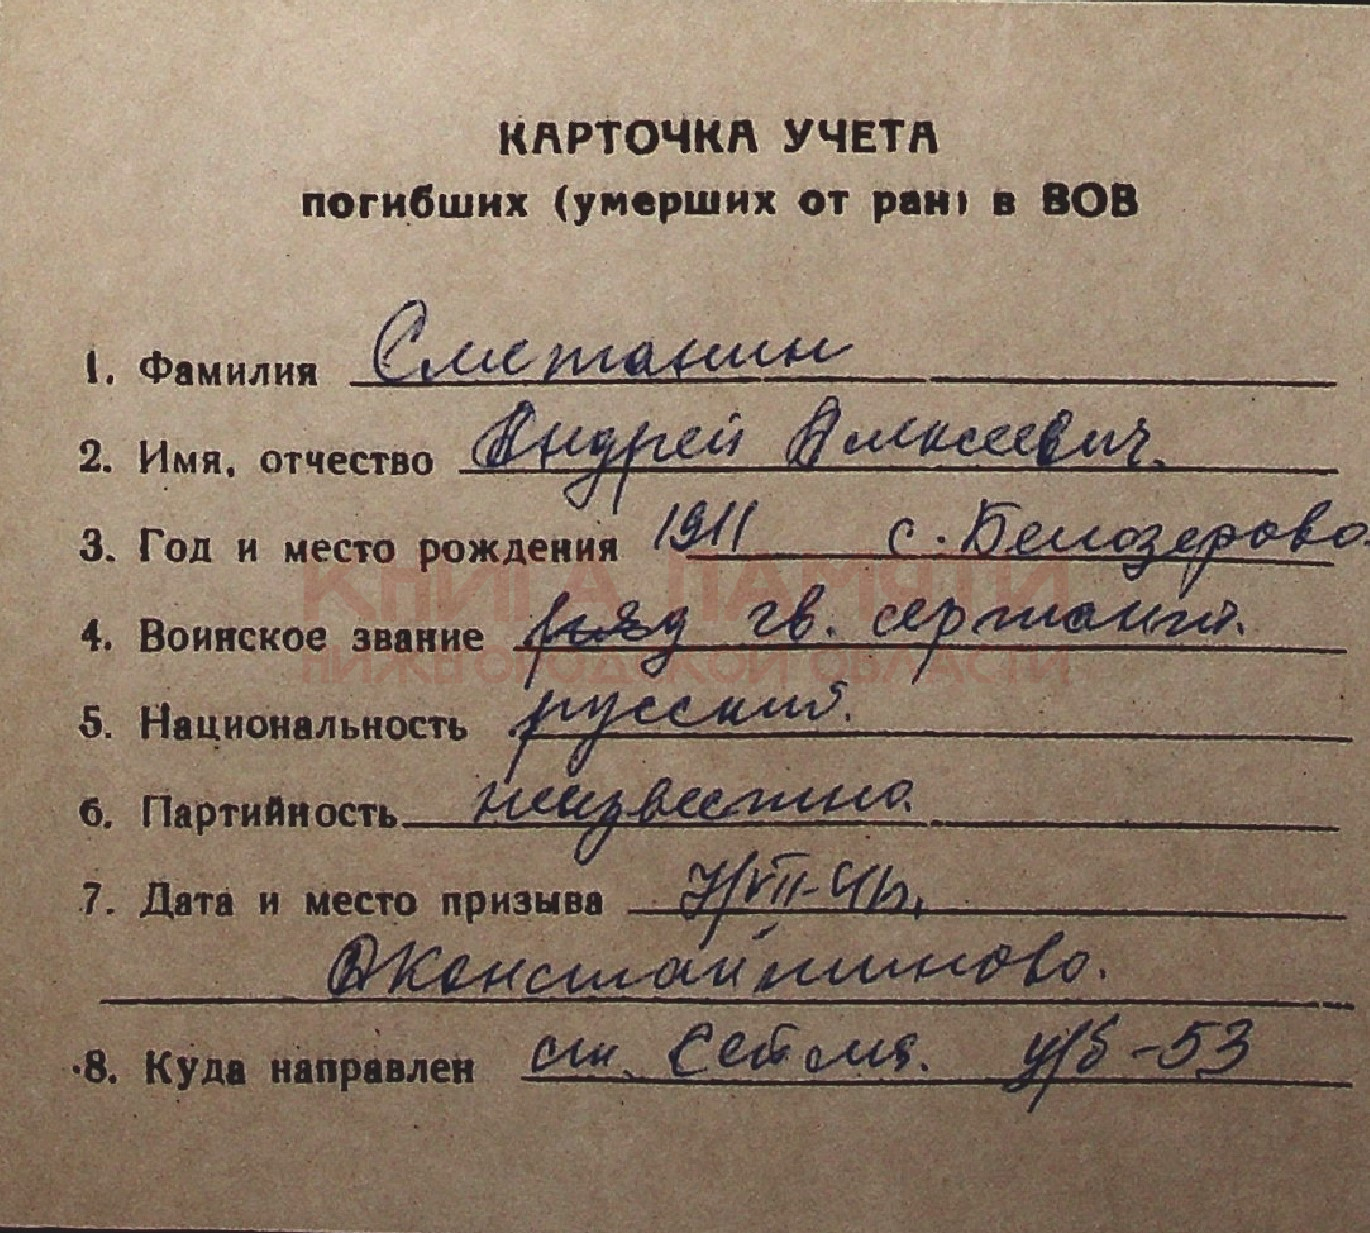 КАРТОЧКА УЧЕТА
погибших (умерших от ран) в ВОВ
1. Фамилия Сметанин
2. Имя, отчество Андрей Алексеевич.
3. Год и место рождения 1911 с. Белозерово.
КНИГА ПАМЯТИ
4. Воинское звание ряд гв. сержант.
НИЖЕГОРОДСКОЙ ОБЛАСТИ
5. Национальность русский.
6. Партийность неизвестно.
7. Дата и место призыва
Д Константиново.
8. Куда направлен ст. Сейма. у/б -53